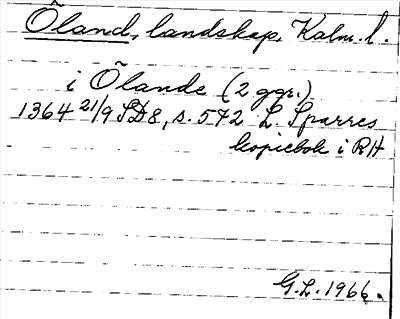 Öland, landskap, Kalm. l.
i Ölande (2 ggr.)
1364 21/9 SD 8, s. 542 L. Sparres
kopiebok i RH
G.L. 1966.